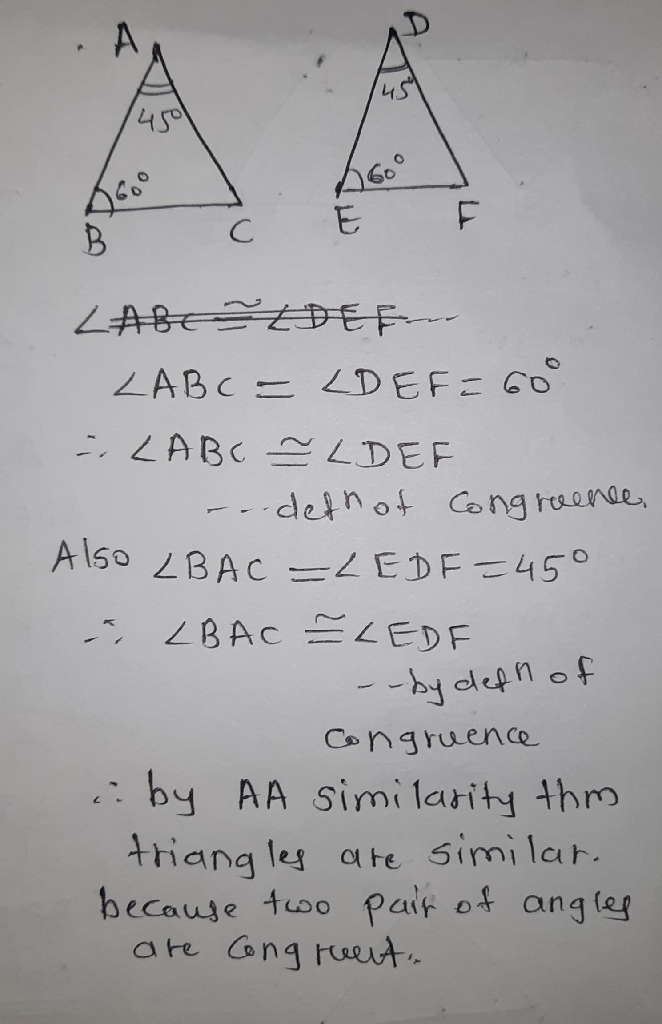 A D
45° 45
60° 60°
B C E F
∠ABC ≅ ∠DEF ---
∠ABC = ∠DEF = 60°
∴ ∠ABC ≅ ∠DEF
--- defn of Congruence.
Also ∠BAC = ∠EDF = 45°
∴ ∠BAC ≅ ∠EDF
-- by defn of
Congruence
∴ by AA similarity thm
triangles are similar.
because two pair of angles
are Congruent.